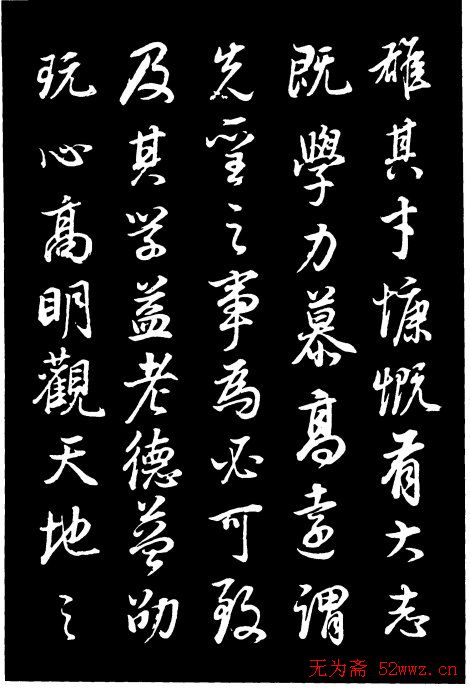 雄其才慷慨有大志
既學力慕高遠謂
先聖之事為必可致
及其学益老德益劭
玩心高明觀天地之
无为斋 52wwz.cn